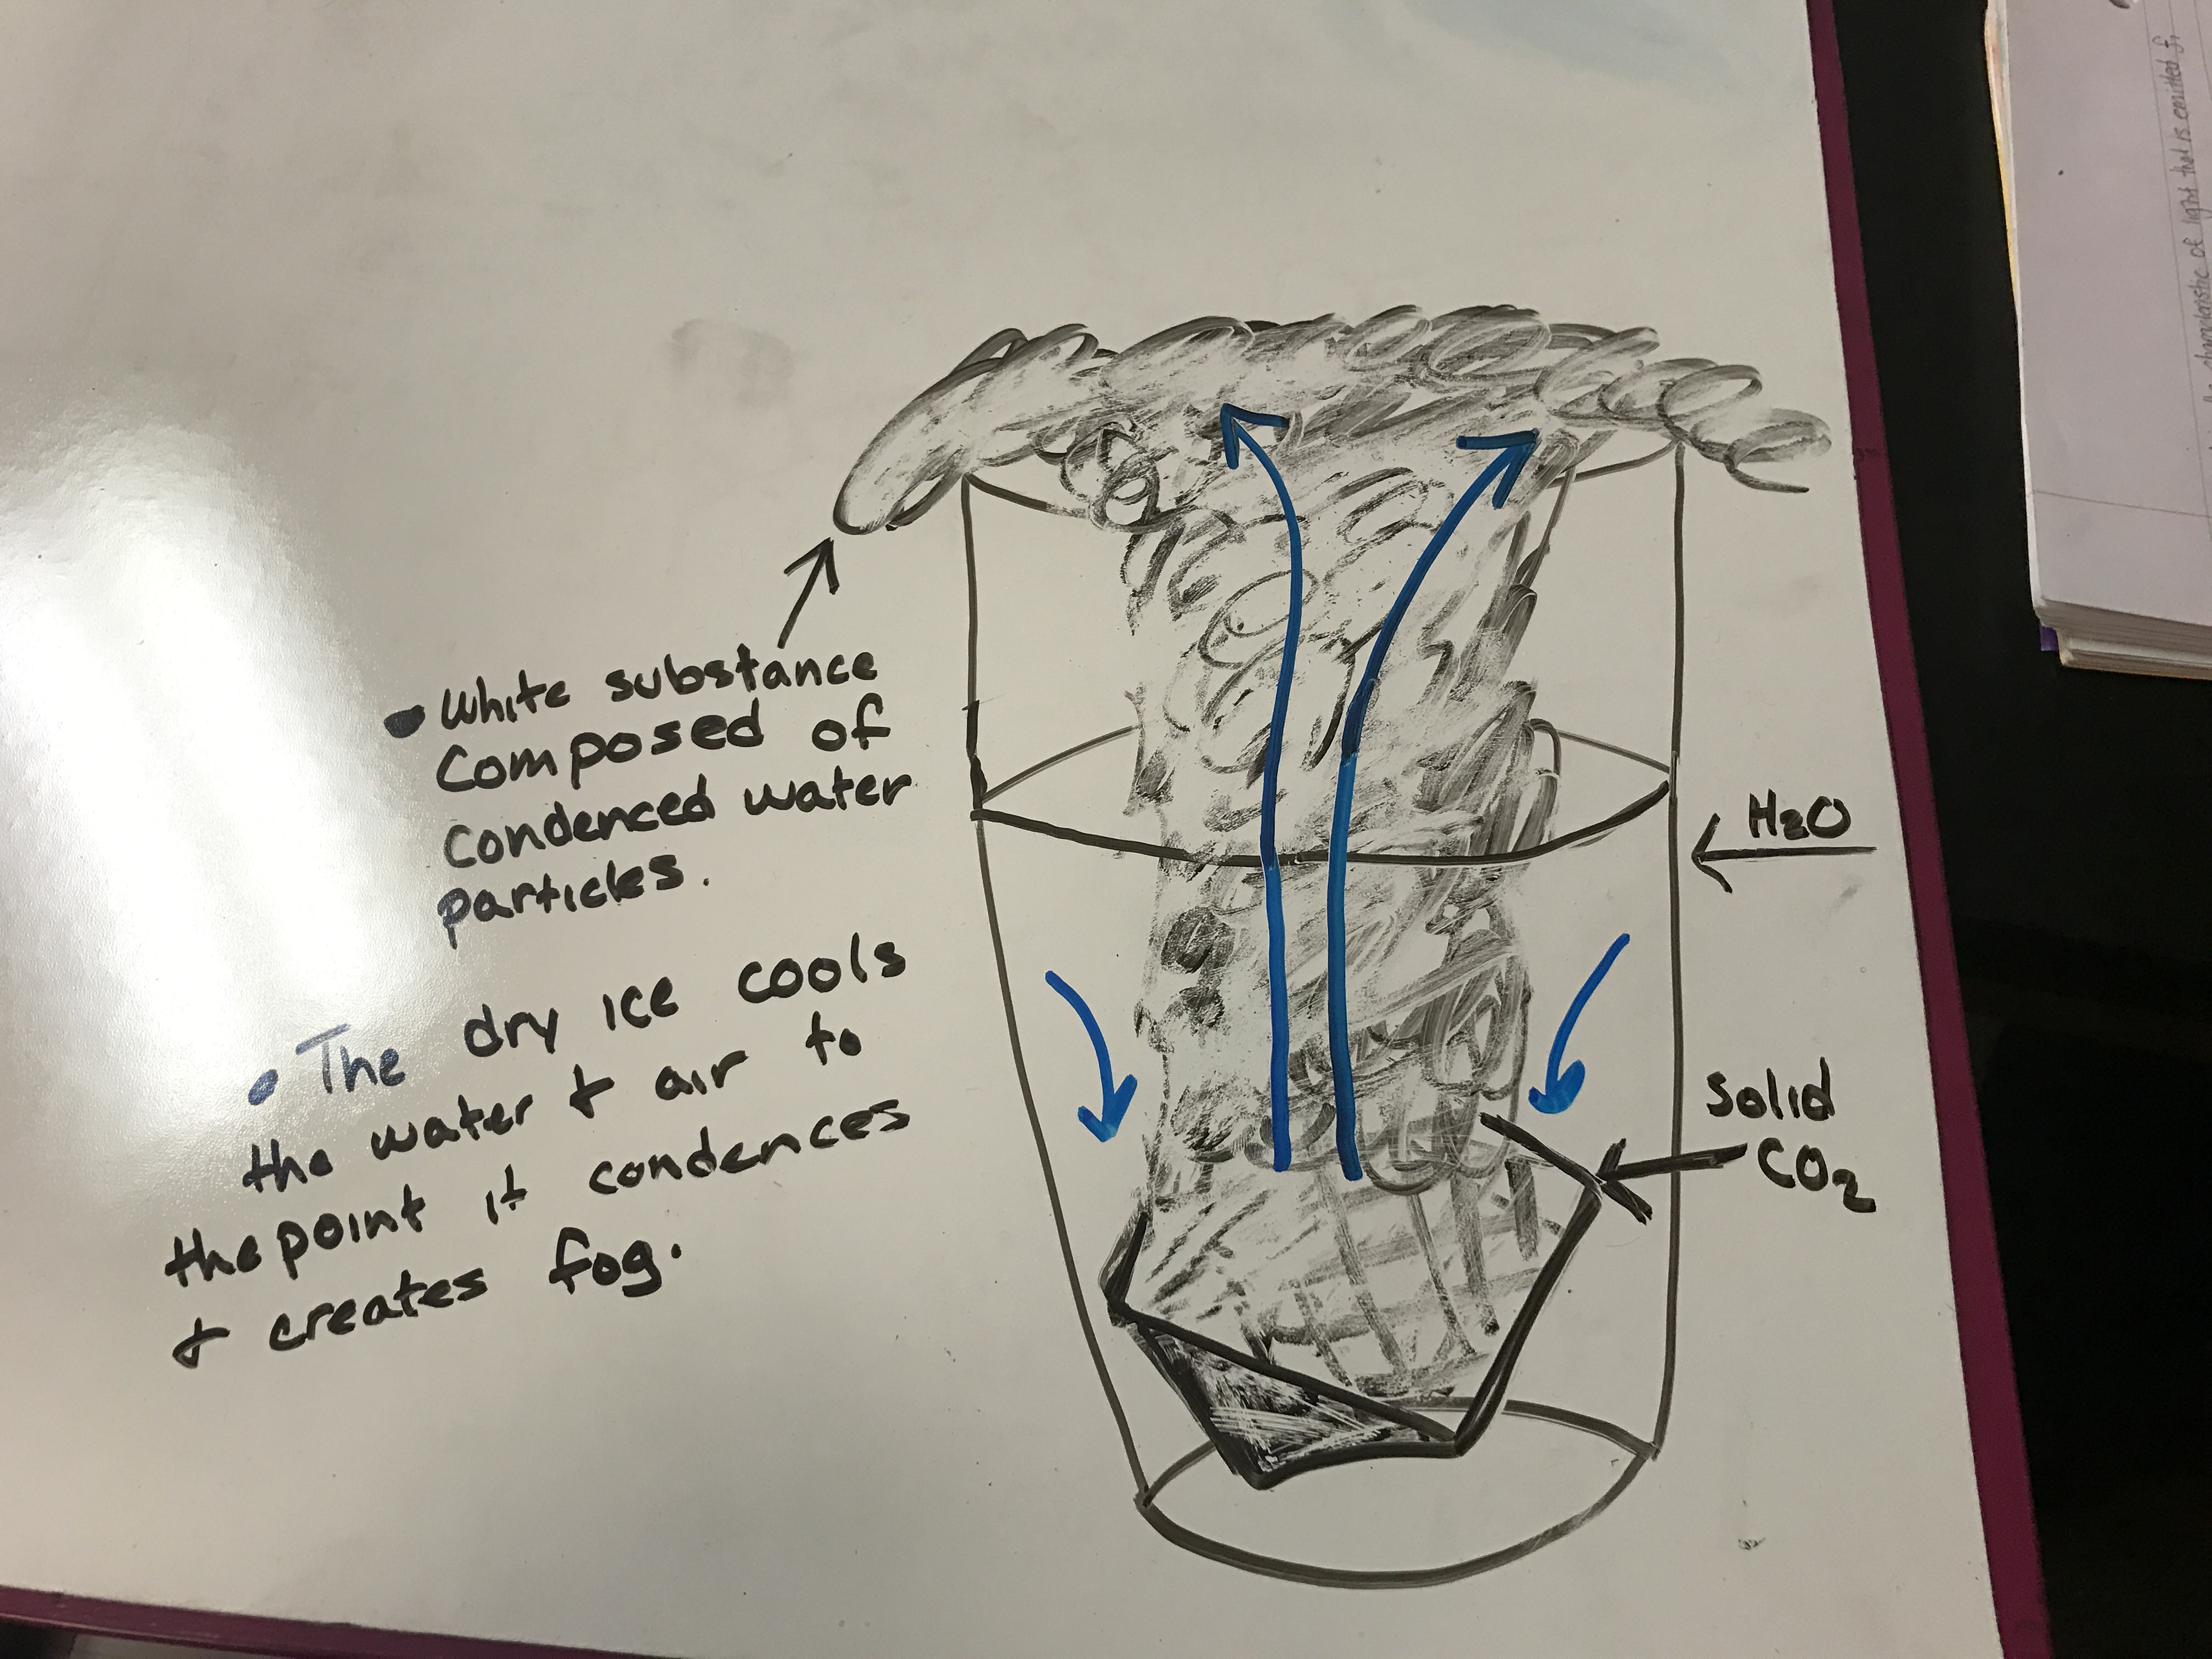 • White substance
composed of
condenced water
particles.
• The dry ice cools
the water + air to
the point it condences
+ creates fog.
H2O
Solid
CO2
characteristic of light that is emitted